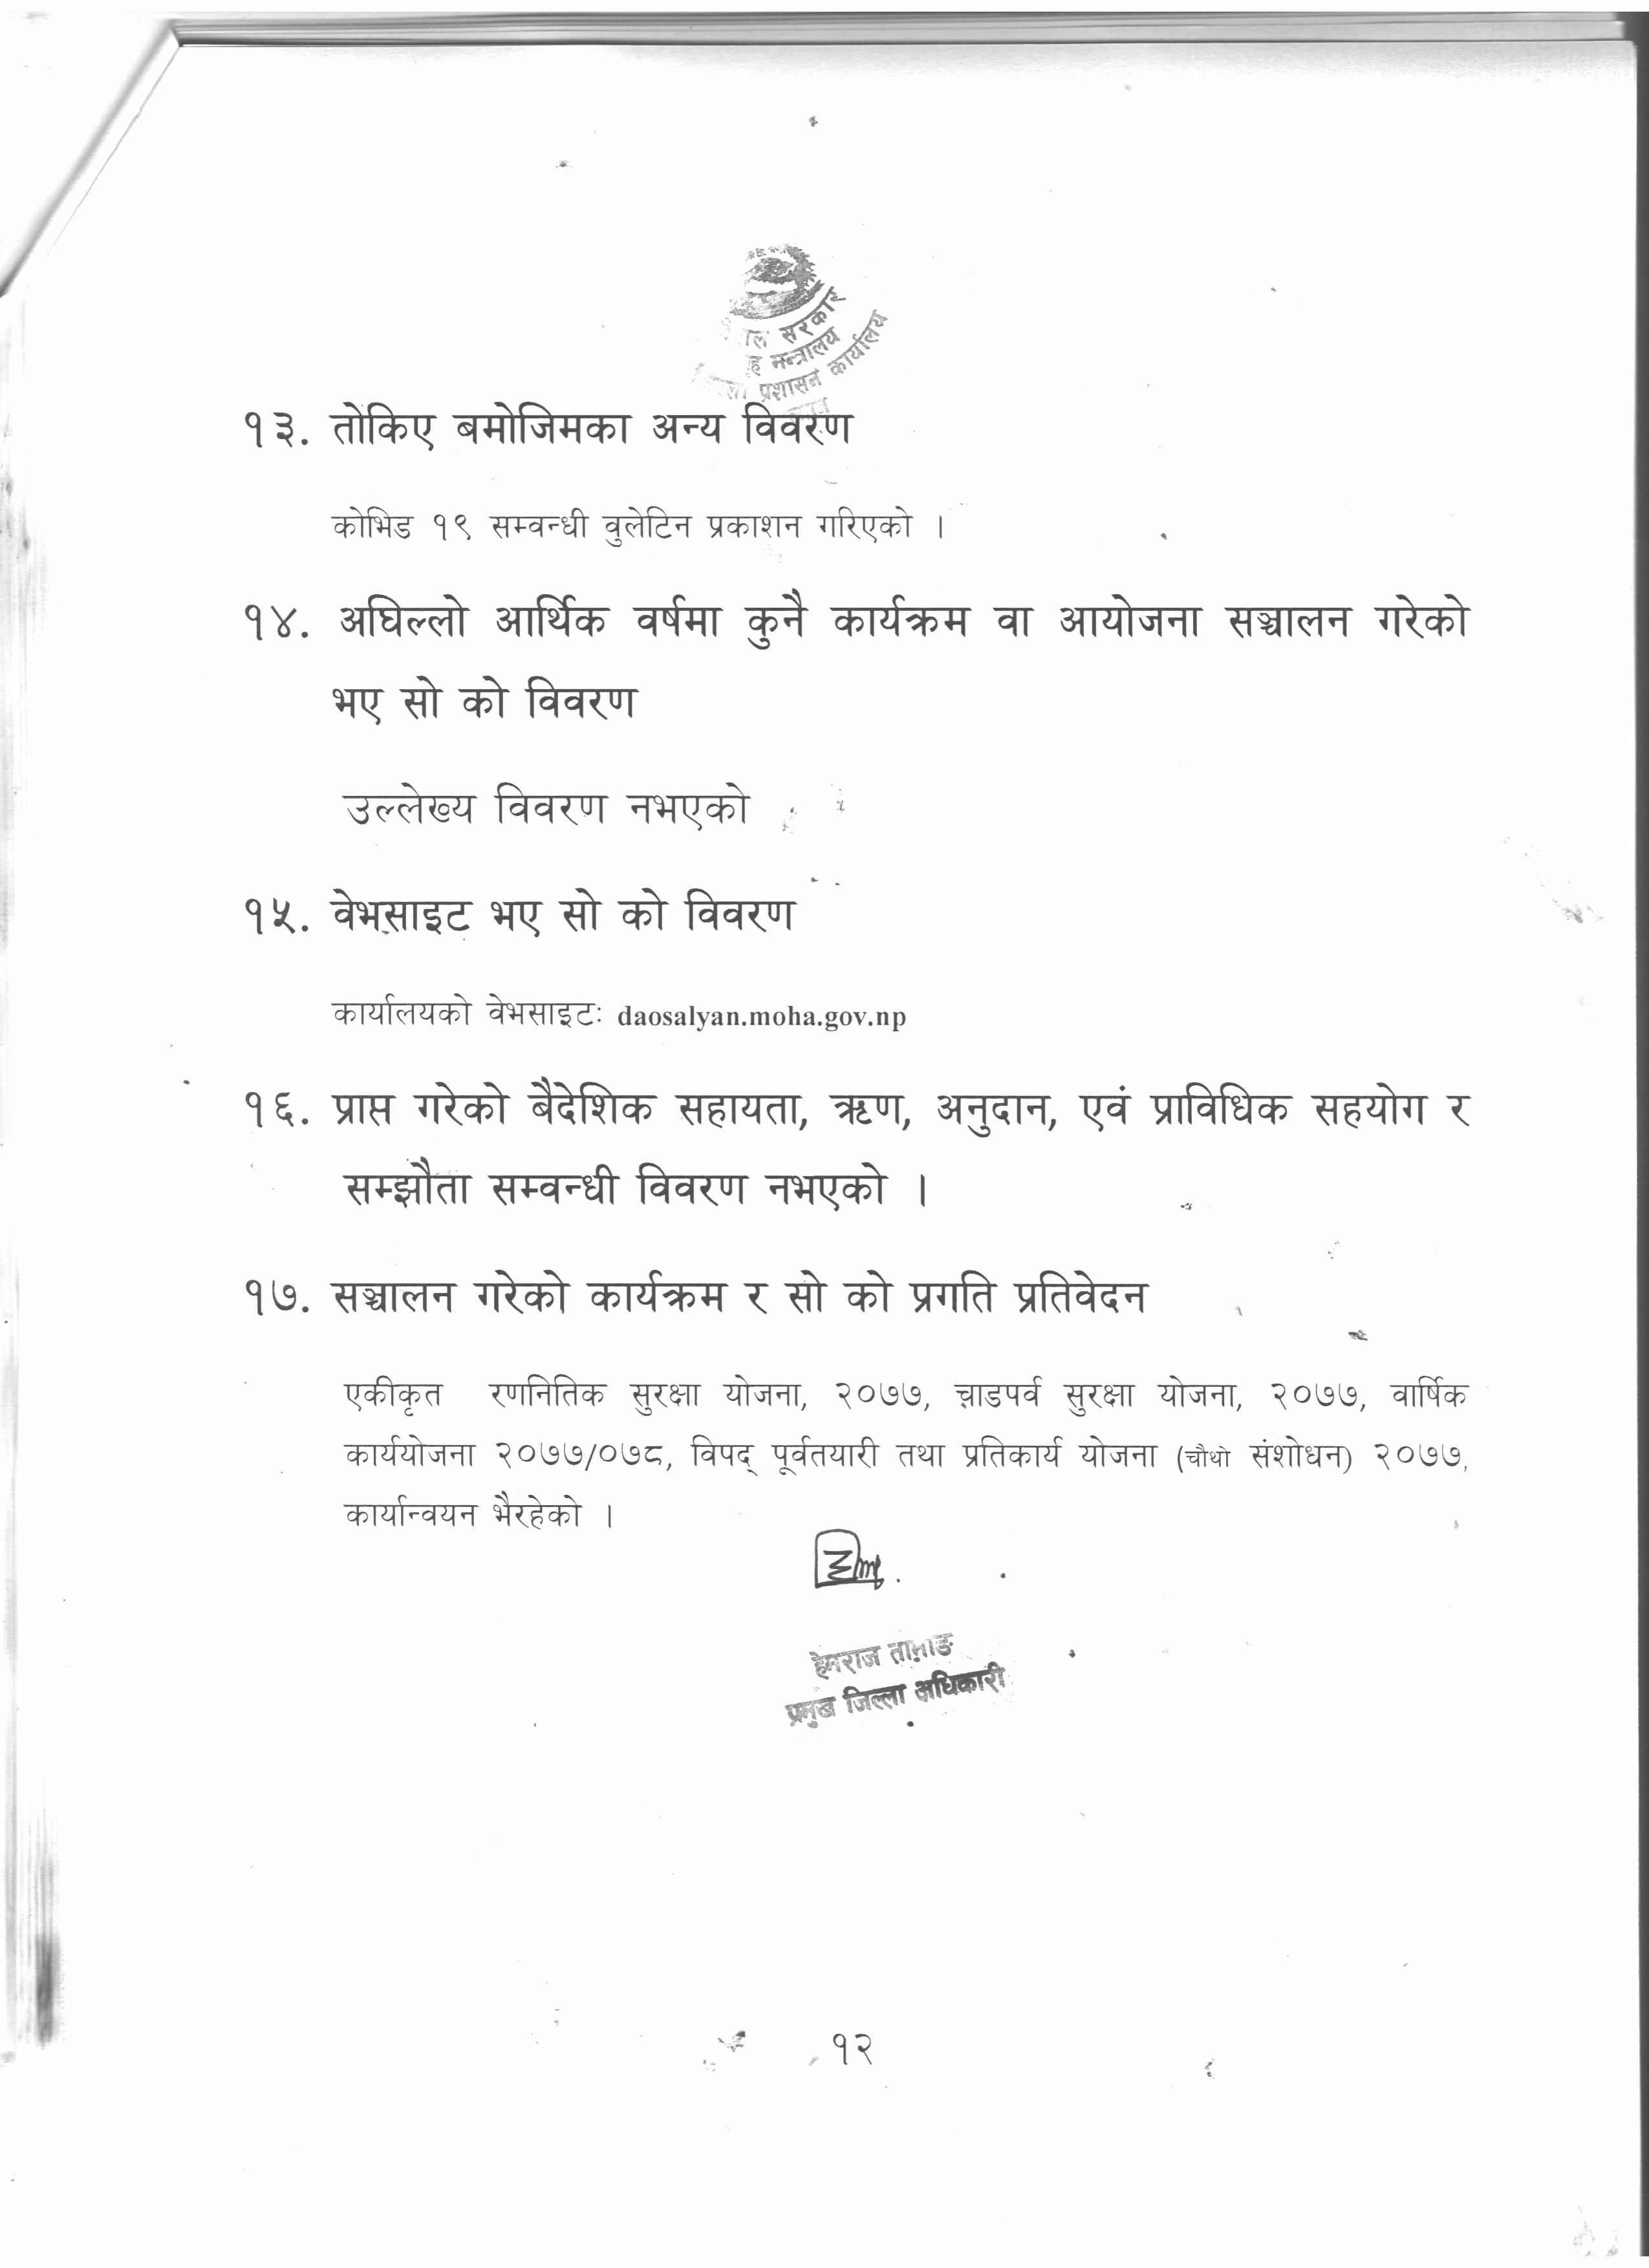 सरकार
मन्त्रालय
प्रशासन कार्यालय
१३. तोकिए बमोजिमका अन्य विवरण
कोभिड १९ सम्वन्धी वुलेटिन प्रकाशन गरिएको ।
१४. अघिल्लो आर्थिक वर्षमा कुनै कार्यक्रम वा आयोजना सञ्चालन गरेको
भए सो को विवरण
उल्लेख्य विवरण नभएको
१५. वेभसाइट भए सो को विवरण
कार्यालयको वेभसाइटः daosalyan.moha.gov.np
१६. प्राप्त गरेको बैदेशिक सहायता, ऋण, अनुदान, एवं प्राविधिक सहयोग र
सम्झौता सम्वन्धी विवरण नभएको ।
१७. सञ्चालन गरेको कार्यक्रम र सो को प्रगति प्रतिवेदन
एकीकृत रणनितिक सुरक्षा योजना, २०७७, चाडपर्व सुरक्षा योजना, २०७७, वार्षिक
कार्ययोजना २०७७/०७८, विपद् पूर्वतयारी तथा प्रतिकार्य योजना (चौथो संशोधन) २०७७,
कार्यान्वयन भैरहेको ।
हेमराज तामाङ
प्रमुख जिल्ला अधिकारी
१२